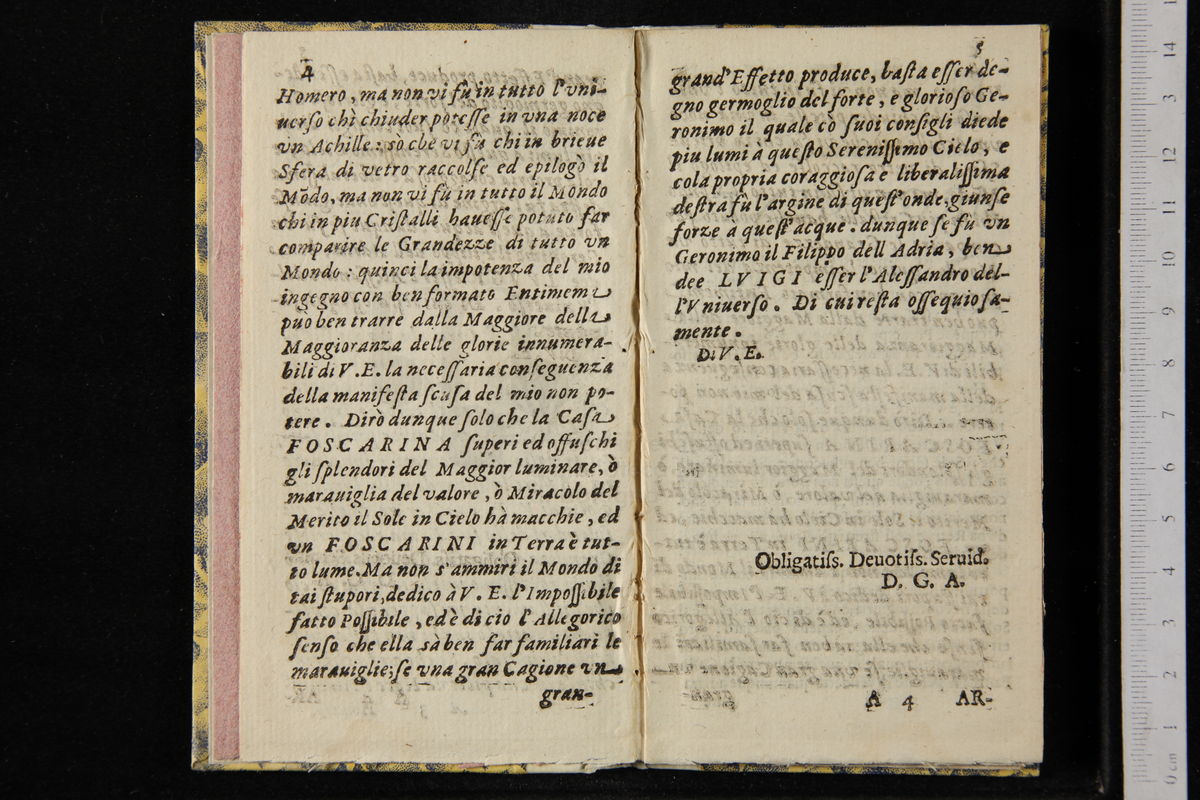 4
Homero, ma non vi fù in tutto l'vni-
uerso chi chiuder potesse in vna noce
vn Achille: sò che vi fù chi in brieue
Sfera di vetro raccolse ed epilogò il
Mõdo, ma non vi fù in tutto il Mondo
chi in piu Cristalli hauesse potuto far
comparire le Grandezze di tutto vn
Mondo: quinci la impotenza del mio
ingegno con ben formato Entimema
puo ben trarre dalla Maggiore della
Maggioranza delle glorie innumera-
bili di V. E. la necessaria conseguenza
della manifesta scusa del mio non po-
tere. Dirò dunque solo che la Casa
FOSCARINA superi ed offuschi
gli splendori del Maggior luminare, ò
marauiglia del valore, ò Miracolo del
Merito il Sole in Cielo hà macchie, ed
vn FOSCARINI in Terra è tut-
to lume. Ma non s'ammiri il Mondo di
tai stupori, dedico à V. E. l'Impossibile
fatto Possibile, ed è di cio l'Allegorico
senso che ella sà ben far familiari le
marauiglie; se vna gran Cagione vn
gran-
5
grand'Effetto produce, basta esser de-
gno germoglio del forte, e glorioso Ge-
ronimo il quale cò suoi consigli diede
piu lumi à questo Serenissimo Cielo, e
cola propria coraggiosa e liberalissima
destra fù l'argine di quest'onde, giunse
forze à quest'acque. dunque se fù vn
Geronimo il Filippo dell Adria, ben
dee LVIGI esser l'Alessandro del-
l'Vniuerso. Di cui resta ossequiosa-
mente.
Di V. E.
Obligatiss. Deuotiss. Seruid.
D. G. A.
A 4 AR-